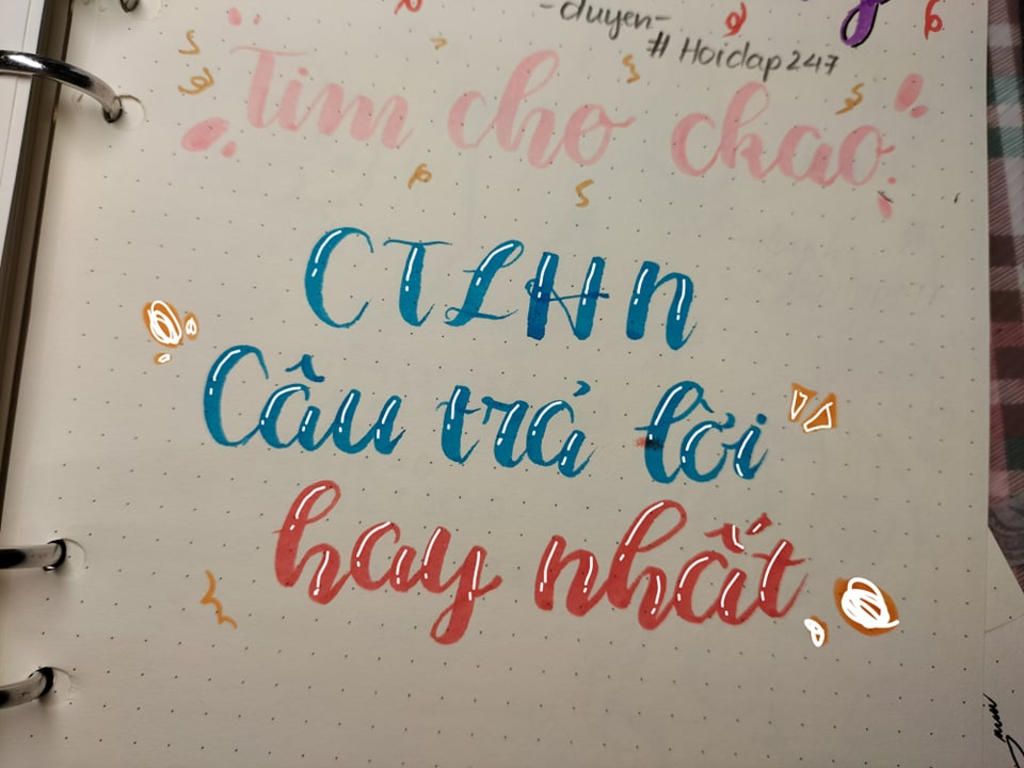 -duyen-
# Hoidap247
Tim cho ckao.
CTLHN
Câu trả lời
hay nhất